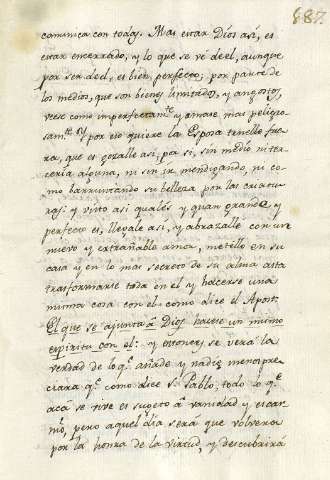 887.
comunica con todas. Mas estar Dios así, es
estar encerrado, y lo que se vé deel, aunque
por ser deel, es bien perfecto; por parte de
los medios, que son bienes limitados, y angostos,
vese como imperfectam.te y amase mas peligro-
sam.te Y por eso quiere la Esposa tenelle fue-
ra, que es gozalle así, por sí, sin medio ni ter-
cería alguna, ni sin ir mendigando, ni co-
mo barruntando su belleza por las criatu-
ras: y visto así quales y quan grande y
perfecto es, llegalle así, y abrazalle con un
nuevo y extrañable amor, metello en su
casa y en lo mas secreto de su alma asta
trasformarse toda en el y hacerse una
misma cosa con el como dice el Apost:
El que se ayunta a Dios hacese un mismo
espiritu con el: y estonces se verá la
verdad de lo q.e añade y nadie menospre-
ciara q.e como dice S. Pablo: todo lo q.e
acá se vive es sugeto á vanidad y escar-
n.o, pero aquel dia será que volvera
por la honra de la virtud, y descubrirá